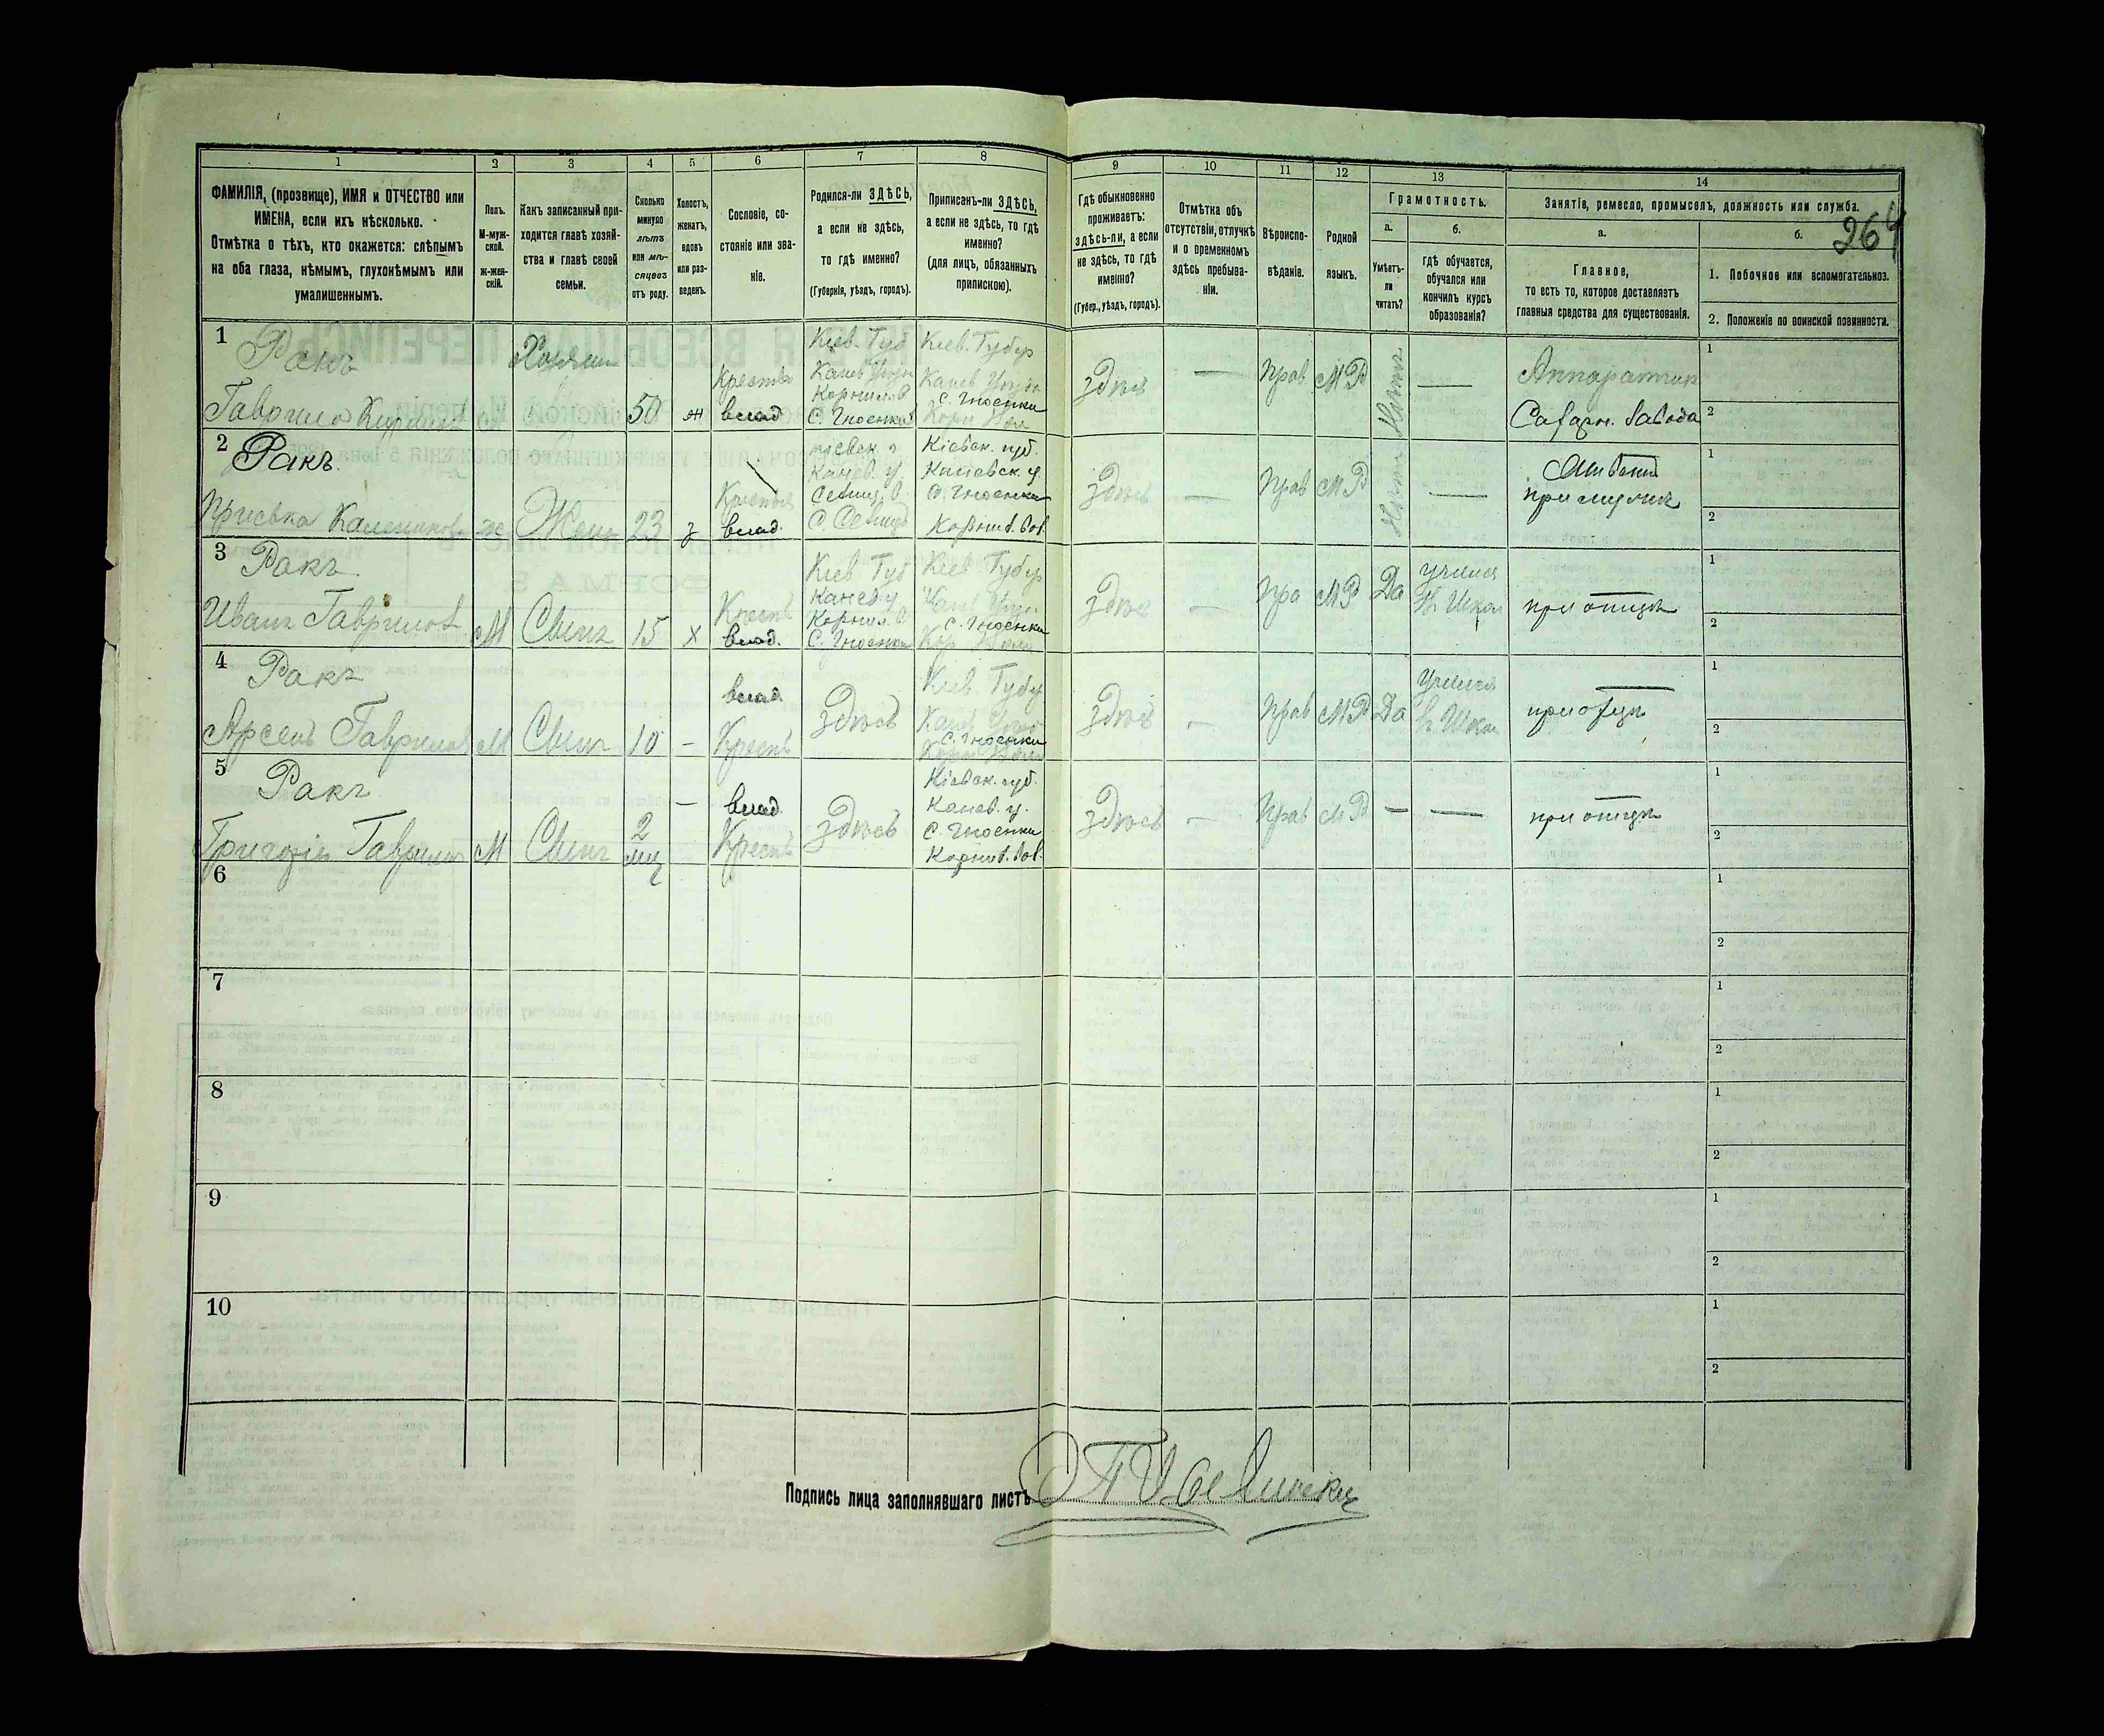 264
1 2 3 4 5 6 7 8 9 10 11 12 13 14
ФАМИЛІЯ, (прозвище), ИМЯ и ОТЧЕСТВО или
ИМЕНА, если ихъ нѣсколько.
Отмѣтка о тѣхъ, кто окажется: слѣпымъ
на оба глаза, нѣмымъ, глухонѣмымъ или
умалишеннымъ.
Полъ.
М-муж-
ской.
ж-жен-
скій.
Какъ записанный при-
ходится главѣ хозяй-
ства и главѣ своей
семьи.
Сколько
минуло
лѣтъ
или мѣ-
сяцевъ
отъ роду.
Холостъ,
женатъ,
вдовъ
или раз-
веденъ.
Сословіе, со-
стояніе или зва-
ніе.
Родился-ли ЗДѢСЬ,
а если не здѣсь,
то гдѣ именно?
(Губернія, уѣздъ, городъ).
Приписанъ-ли ЗДѢСЬ,
а если не здѣсь, то гдѣ
именно?
(для лицъ, обязанныхъ
припискою).
Гдѣ обыкновенно
проживаетъ:
здѣсь-ли, а если
не здѣсь, то гдѣ
именно?
(Губер., уѣздъ, городъ).
Отмѣтка объ
отсутствіи, отлучкѣ
и о временномъ
здѣсь пребыва-
ніи.
Вѣроиспо-
вѣданіе.
Родной
языкъ.
Грамотность.
а.
Умѣетъ-
ли
читать?
б.
гдѣ обучается,
обучался или
кончилъ курсъ
образованія?
Занятіе, ремесло, промыселъ, должность или служба.
а.
Главное,
то есть то, которое доставляетъ
главныя средства для существованія.
б.
1. Побочное или вспомогательноз.
2. Положеніе по воинской повинности.
1
Ракъ
Гаврило
Хозяин
50
ж
Крестья
влад.
Кіев. Губ
Канев
Корнил. в
С. Гноенка
Кіев. Губер
Канев Уезда
С. Гноенки
здѣсь
—
Прав
МР
—
Аппаратчик
Сахарн. завода
1
2
2
Ракъ
Приська
ж
Жена
23
з
влад.
Канев. у
Кіевск. губ.
Каневск. у.
С. Гноенки
Корнил. вол.
здѣсь
—
Прав
МР
—
при мужѣ
1
2
3
Ракъ
Иванъ Гаврилов
М
Сынъ
15
х
Крестья
влад.
Кіев Губ
Канев у
Корнил. в
С. Гноенка
Кіев Губер
С. Гноенки
здѣсь
—
Пра
МР
Да
при отцѣ
1
2
4
Ракъ
Арсенъ Гаврилов
М
Сынъ
10
—
влад.
Крестья
здѣсь
Кіев. Губер
Канев Уезд
С. Гноенки
здѣсь
—
Прав
МР
Да
при отцѣ
1
2
5
Ракъ
Григорій Гаврилов
М
Сынъ
2
мц
—
влад.
Крестья
здѣсь
Кіевск. губ.
Канев. у.
С. Гноенки
Корнил. вол.
здѣсь
—
Прав
МР
—
—
при отцѣ
1
2
6
1
2
7
1
2
8
1
2
9
1
2
10
1
2
Подпись лица заполнявшаго листъ